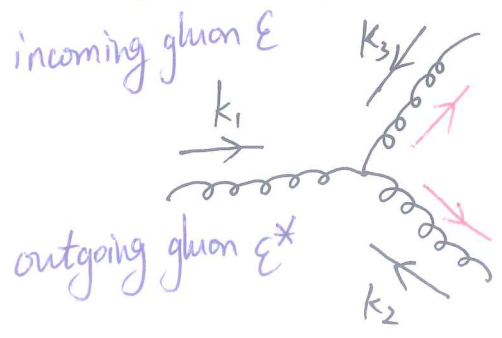 incoming gluon ε
k₃
k₁
outgoing gluon ε*
k₂